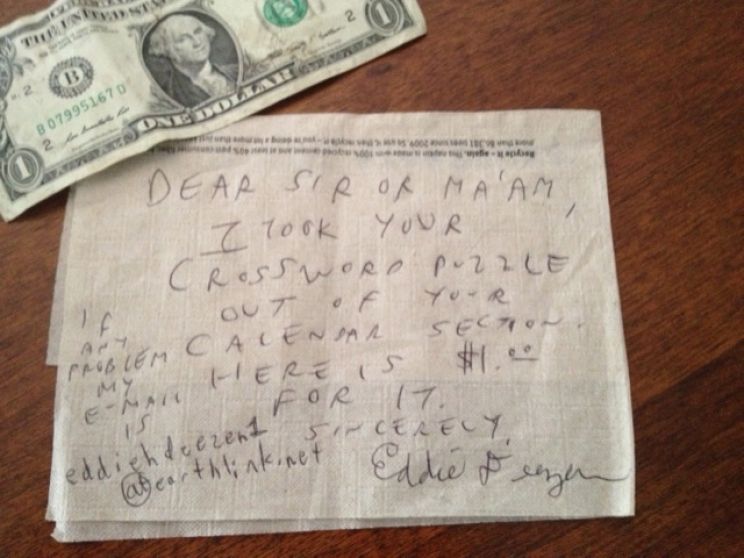 THE UNITED STA
B
2
B 07995167 D
2
2
1
1
ONE DOLLAR
Recycle it – again. This napkin is made with 100% recycled content and at least 40% post-consumer
more than 86,381 users since 2009. So use it, then recycle it – you're doing a lot more than just
DEAR SIR OR MA'AM,
I TOOK YOUR
CROSSWORD PUZZLE
OUT OF YOUR
CALENDAR SECTION.
HERE IS $1.00
FOR IT.
SINCERELY,
Eddie Deezen
IF
ANY
PROBLEM
MY
E-MAIL
IS
eddiehdeezen1
@earthlink.net